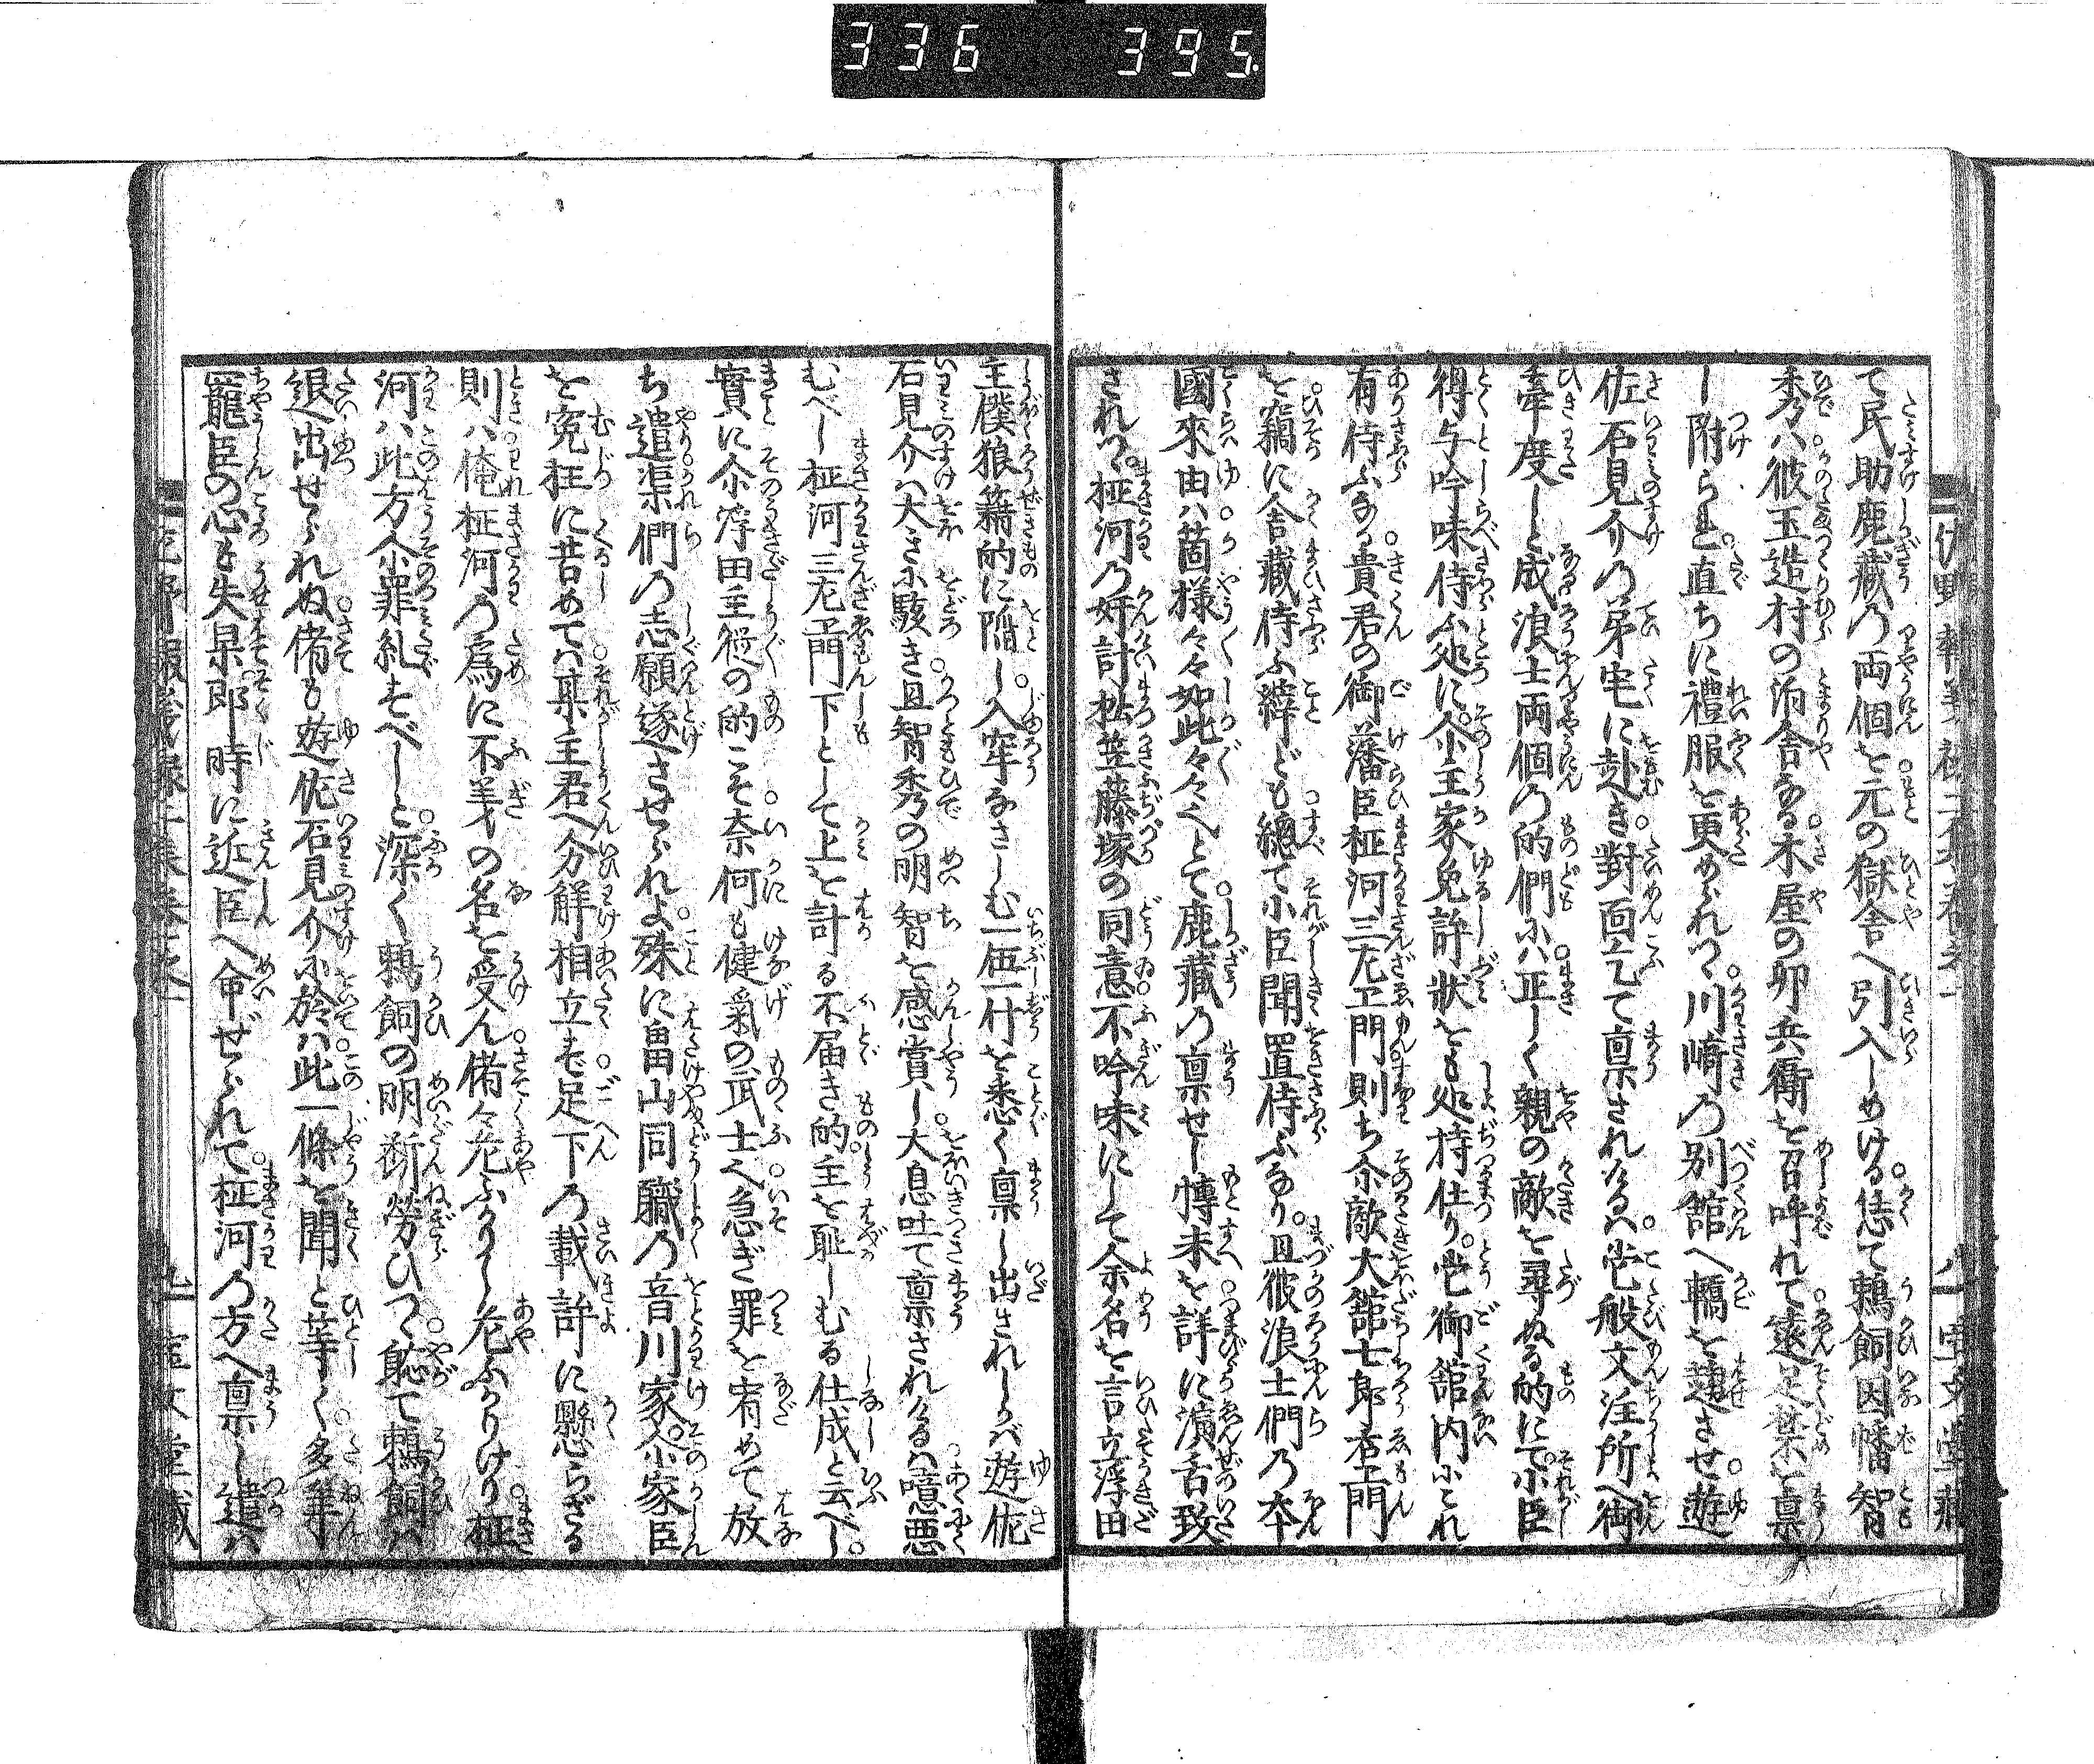 336 395.
て民助鹿藏乃両個を元の獄舎へ引入しめける。恁て鵜飼因幡智
秀ハ彼玉造村の泊舎なる木屋の卯兵衛を召呼れて遠足禁を稟
し附られ直ちに禮服を更められつゝ川崎乃別舘へ轎を趨させ遊
佐石見介乃弟宅に赴き對面乞て稟されけるハ這般文注所へ御
牽度しと成浪士両個乃的們ハ正しく親の敵を尋ぬる的にて小臣
得与吟味侍ふ処に尒主家免許狀をも処持仕り。这御舘内にこれ
有侍ふなる貴君の御藩臣柾河三左エ門則ち尒敵大舘七郎右エ門
を竊に舎藏侍ふ縡ども總て小臣聞置侍ふなり。且彼浪士們乃夲
國來由ハ箇様々々如此々々へとて鹿藏乃稟せし慱末を詳に演舌致
されつゝ柾河乃奸計松笠藤塚の同意不吟味にして余名を言立浮田
主僕狼籍的に陥し入牢なさしむ一伍一什を悉く稟し出されしかバ遊佐
石見介ハ大きに駭き且智秀の明智を感賞し大息吐て稟されけるハ噫悪
むべし柾河三左エ門下として上を計る不届き的主を耻しむる仕成と云べし。
實に尒浮田主從の的こそ奈何も健氣の武士へ急ぎ罪を宥めて放
ち遣渠們乃志願遂させられよ殊に畠山同職乃音川家尒家臣
を寃枉に苦めてハ某主君へ分解相立ず足下乃載許に懸らざる
則ハ俺柾河乃為に不義の名を受ん偖々危ふかりし危ふかりけり柾
河ハ此方尒罪糺すべしと深く鵜飼の明断勞ひつゝ軈て鵜飼ハ
退出せられぬ偖も遊佐石見介に於ハ此一條を聞と等く多年
寵臣の心を失果即時に近臣へ命ぜられて柾河乃方へ稟し遣ハ